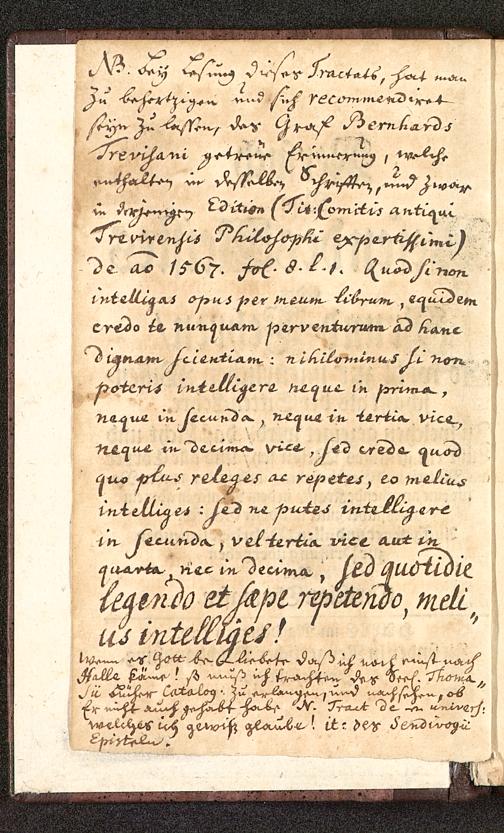 NB. Beÿ Lesung dieses Tractats, hat man
zu behertzigen und sich recommendiret
seÿn zu lassen, des Graf Bernhards
Trevisani getreüe Erinnerung, welche
enthalten in desselben Schrifften, und zwar
in derjenigen Edition (Tit: Comitis antiqui
Trevirensis Philosophi expertissimi)
de aõ 1567. fol. 8. l. 1. Quod si non
intelligas opus per meum librum, equidem
credo te nunquam perventurum ad hanc
dignam scientiam: nihilominus si non
poteris intelligere neque in prima,
neque in secunda, neque in tertia vice,
neque in decima vice, sed crede quod
quo plus releges ac repetes, eo melius
intelliges: sed ne putes intelligere
in secunda, vel tertia vice aut in
quarta, nec in decima, sed quotidie
legendo et sæpe repetendo, meli„
us intelliges!
Wenn es Gott beliebete daß ich noch einst nach
Halle käme! so muß ich trachten des Seel. Thoma„
sii Bücher Catalog: zu erlangen, und nachsehen, ob
Er nicht auch gehabt habe N. Tract de univers:
welches ich gewiß glaube! it: des Sendivogii
Episteln.